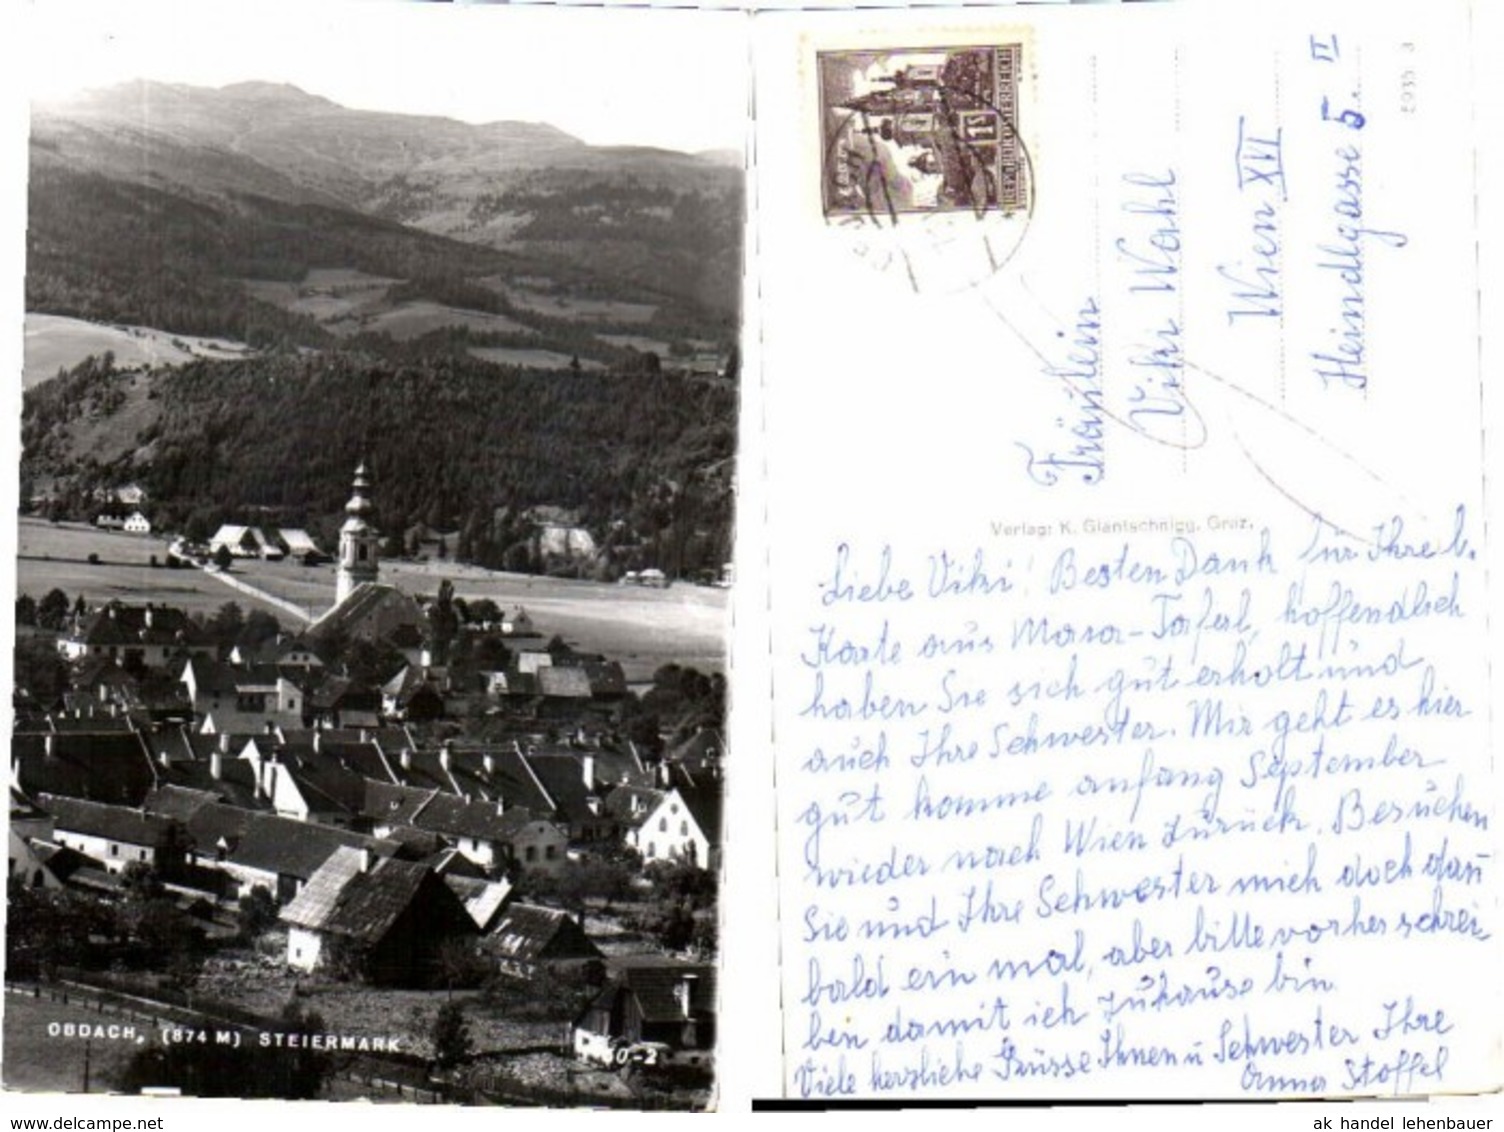 OBDACH, (874 M) STEIERMARK
60-2
REPUBLIK ÖSTERREICH
1S
Fräulein
Viki Wahl
Wien XVI
Heindlgasse 5. II
Verlag: K. Glantschnigg, Graz.
Liebe Viki! Besten Dank für Ihre l.
Karte aus Maria-Taferl, hoffendlich
haben Sie sich gut erholt und
auch Ihre Schwester. Mir geht es hier
gut komme anfang September
wieder nach Wien zurück. Besuchen
Sie und Ihre Schwester mich doch dan
bald ein mal, aber bitte vorher schrei-
ben damit ich zuhause bin
Viele herzliche Grüsse Ihnen u Schwester Ihre
Anna Stoffel
delcampe.net
ak handel lehenbauer